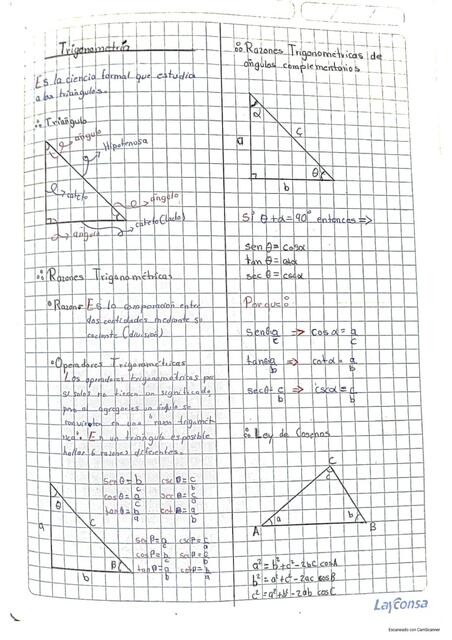 Trigonometría
Es la ciencia formal que estudia
a los triángulos.
Triángulo
ángulo
Hipotenusa
cateto
ángulo
ángulo
cateto (lado)
Razones Trigonométricas
Razón: Es la comparación entre
dos cantidades mediante su
cociente (división)
Operadores Trigonométricos
Los operadores trigonométricos por
si solos no tienen un significado,
pero al agregarles un ángulo se
convierten en una razón trigonomét
rica. En un triángulo es posible
hallar 6 razones diferentes.
θ
a
c
b
β
sen θ = b/c csc θ = c/b
cos θ = a/c sec θ = c/a
tan θ = b/a cot θ = a/b
sen β = a/c csc β = c/a
cos β = b/c sec β = c/b
tan β = a/b cot β = b/a
Razones Trigonométricas de
ángulos complementarios
α
a
c
θ
b
Si θ + α = 90° entonces =>
sen θ = cos α
tan θ = cot α
sec θ = csc α
Porque:
sen θ = a/c => cos α = a/c
tan θ = a/b => cot α = a/b
sec θ = c/b => csc α = c/b
Ley de Cosenos
C
c
a
b
A
B
a² = b² + c² - 2bc cos A
b² = a² + c² - 2ac cos B
c² = a² + b² - 2ab cos C
Layconsa
Escaneado con CamScanner